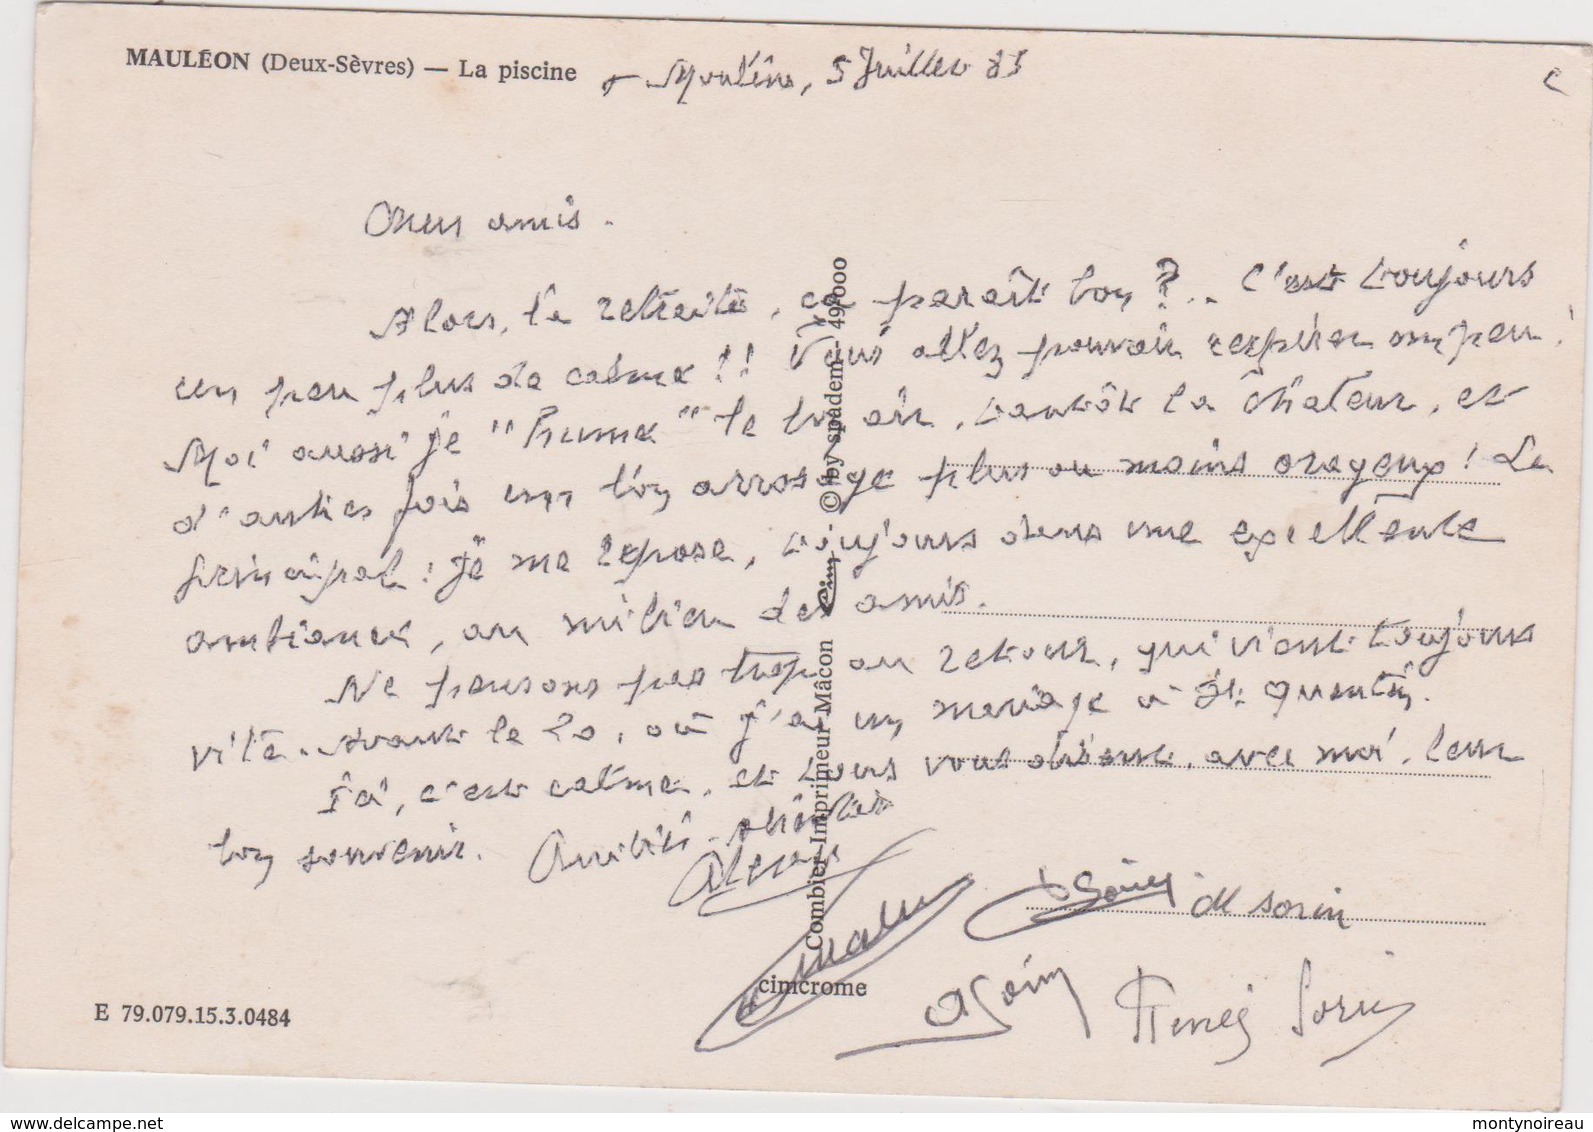 MAULÉON (Deux-Sèvres) — La piscine
Moulins, 5 Juillet 85
Chers amis.
Alors, la retraite, ça paraît bon ?.. C'est toujours
un peu plus de calme !! Vous allez pouvoir respirer un peu !
Moi aussi je "hume" le bon air, tantôt la chaleur, et
d'autres fois un bon arrosage plus ou moins orageux ! Le
principal : je me repose, toujours dans une excellente
ambiance, au milieu des amis.
Ne pensons pas trop au retour, qui vient toujours
vite. Avant le 20, où j'ai un mariage à St Quentin.
Ici, c'est calme, et tous vous disent, avec moi, leur
bon souvenir. Amitiés
M Sorin
Sorin
Renée Sorin
© by spadem - 49.000
Cim
Combier Imprimeur Mâcon
cimcrome
E 79.079.15.3.0484
www.delcampe.net
montynoireau